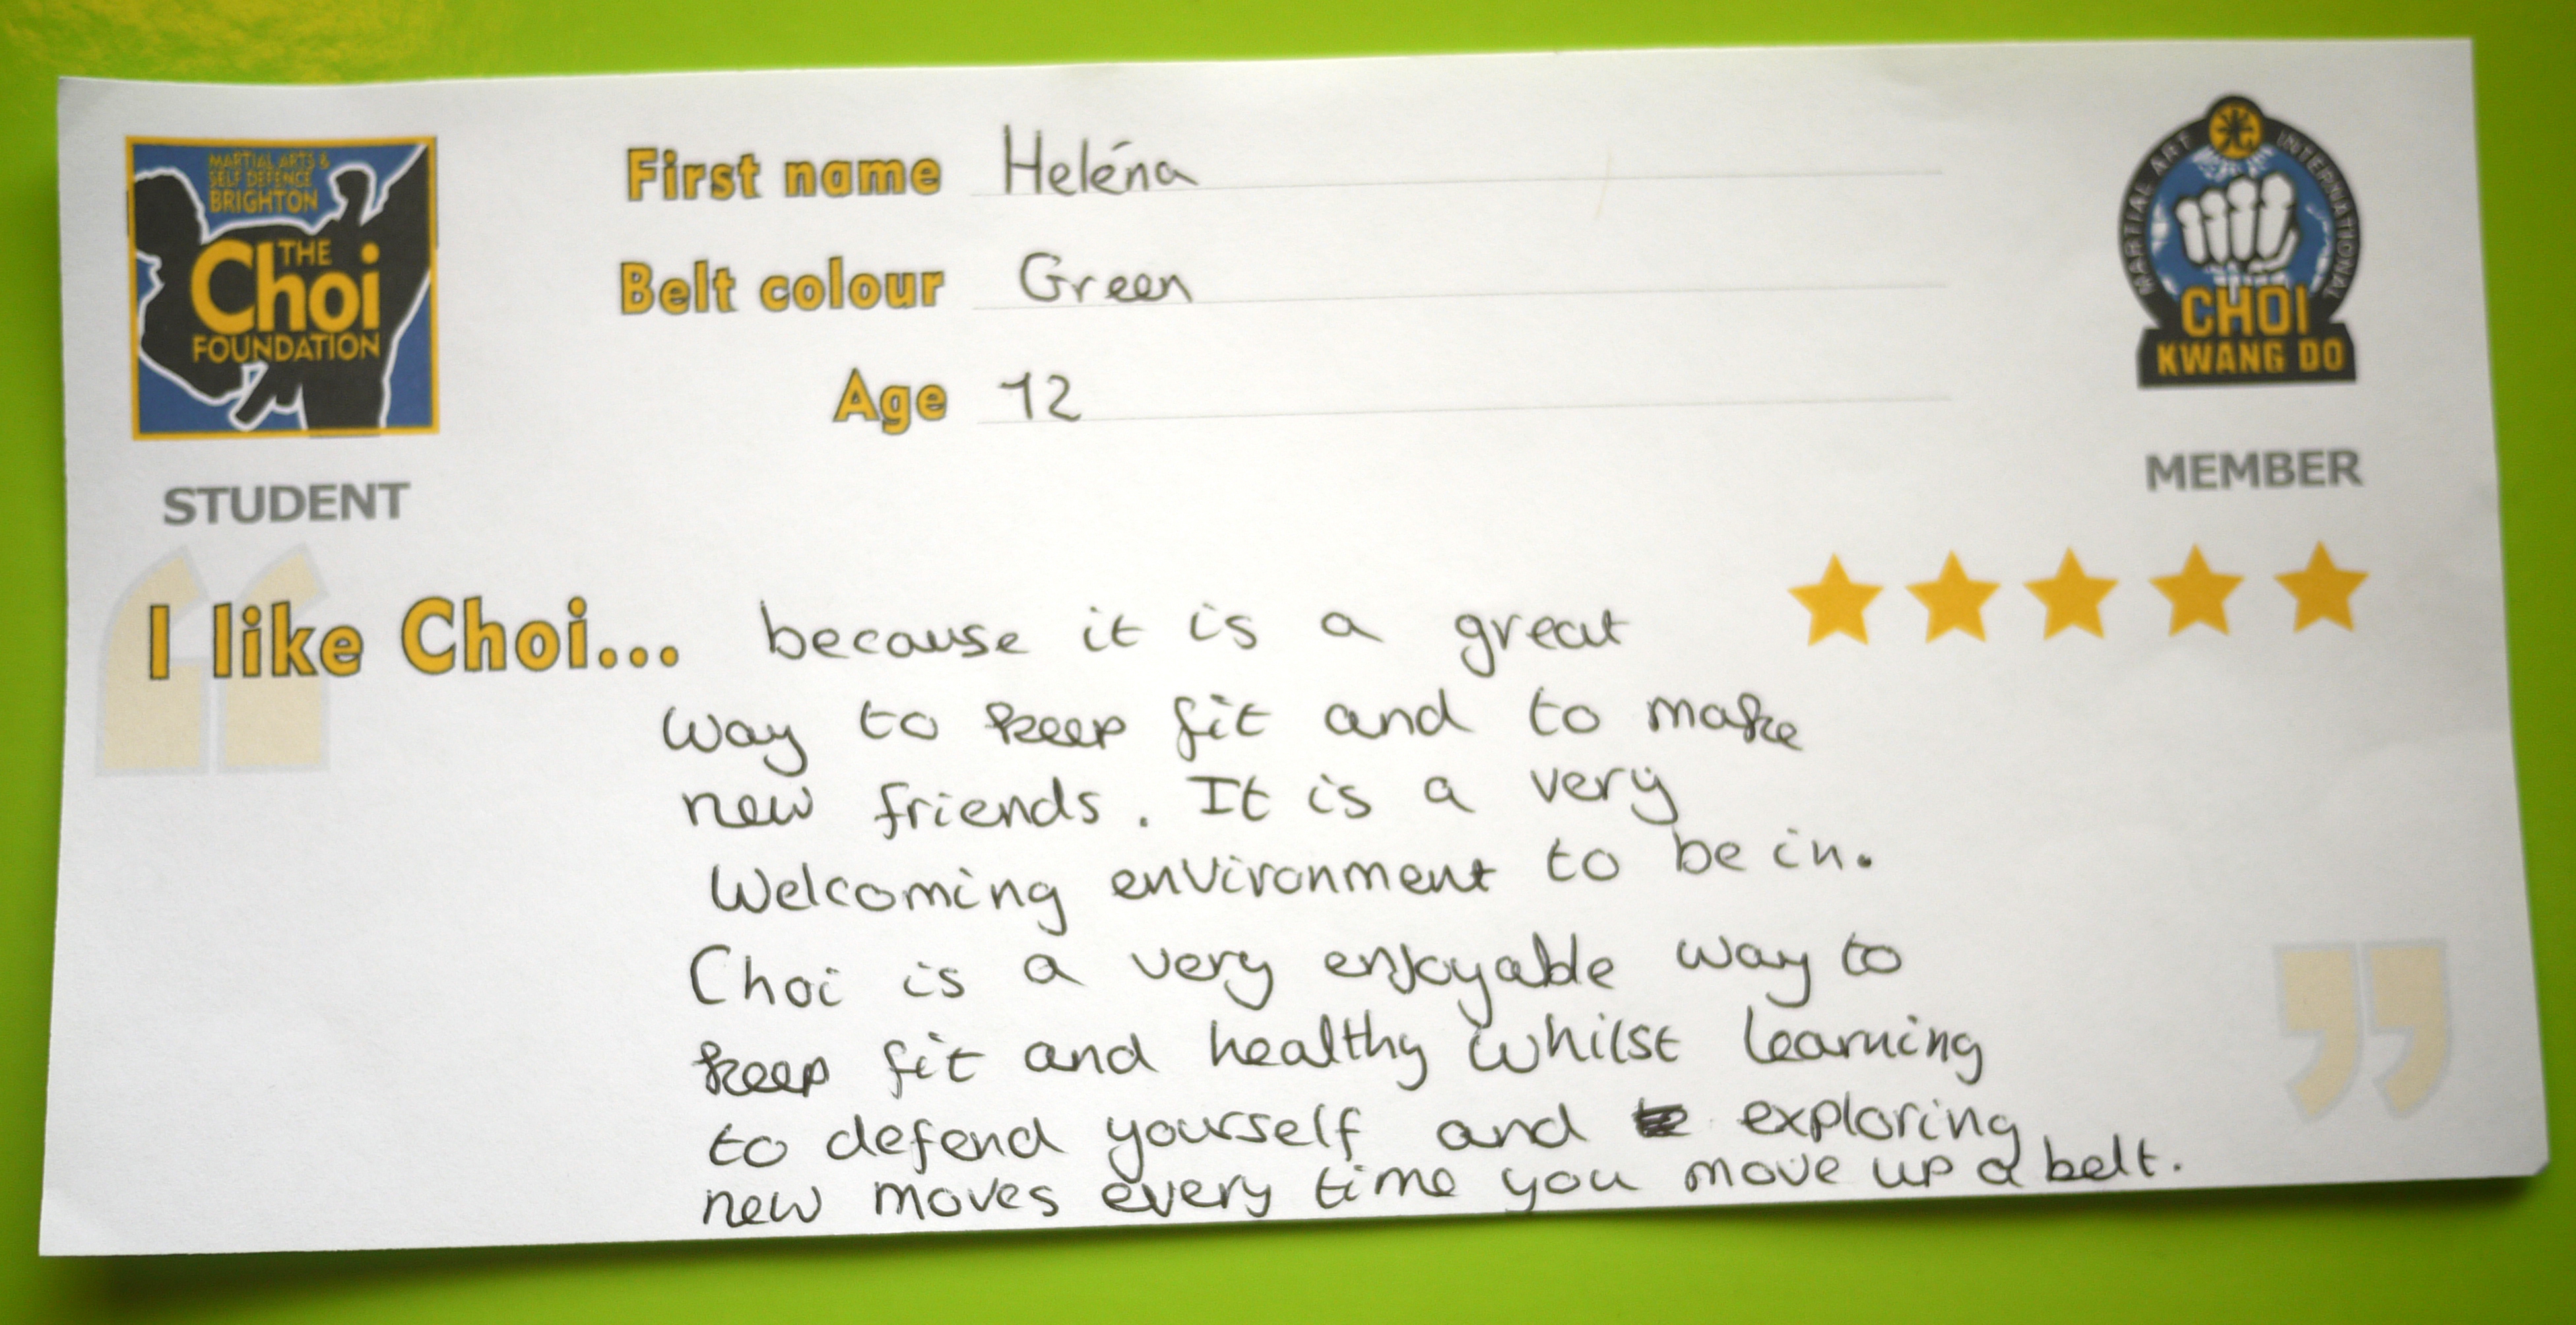 MARTIAL ARTS &
SELF DEFENCE
BRIGHTON
THE
Choi
FOUNDATION
STUDENT
First name Heléna
Belt colour Green
Age 12
MARTIAL ART INTERNATIONAL
CHOI
KWANG DO
MEMBER
“
I like Choi... because it is a great
way to keep fit and to make
new friends. It is a very
Welcoming environment to be in.
Choi is a very enjoyable way to
keep fit and healthy whilst learning
to defend yourself and exploring
new moves every time you move up a belt.
”